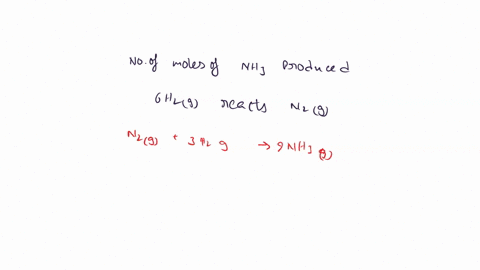 No. of moles of NH3 produced
6H2(g) reacts N2(g)
N2(g) + 3H2 g → 2NH3 (g)